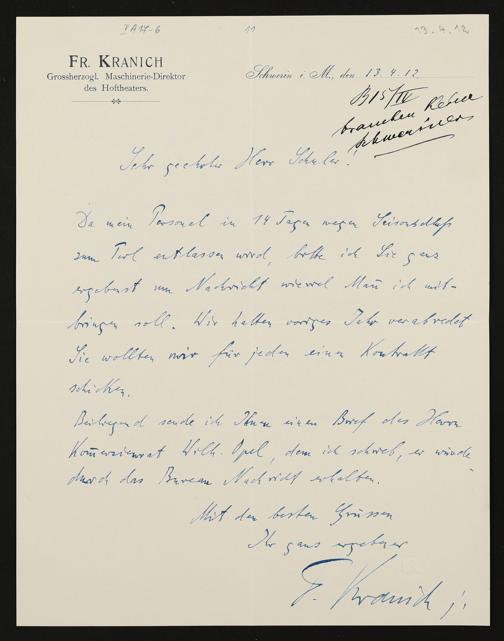 VA17-6
11
13.4.12
FR. KRANICH
Grossherzogl. Maschinerie-Direktor
des Hoftheaters.
Schwerin i. M., den 13.4.12
B 15/IV
brauchen keine
Schweriner
Sehr geehrter Herr Schuler!
Da mein Personal in 14 Tagen wegen Saisonschluss
zum Teil entlassen wird, bitte ich Sie ganz
ergebenst um Nachricht wieviel Mañ ich mit-
bringen soll. Wir hatten voriges Jahr verabredet
Sie wollten mir für jeden einen Kontrakt
schicken.
Beiliegend sende ich Ihnen einen Brief des Herrn
Kom̄erzienrat Wilh. Opel, dem ich schrieb, er würde
durch das Bureau Nachricht erhalten.
Mit den besten Grüssen
Ihr ganz ergebener
F. Kranich j.